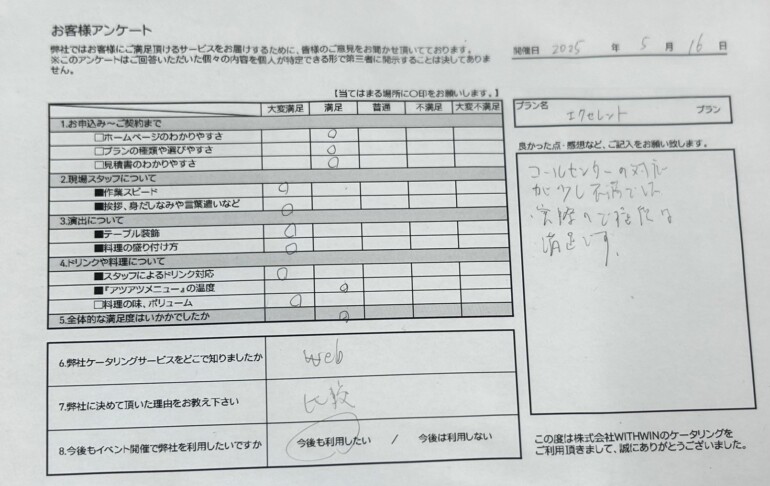 お客様アンケート
弊社ではお客様にご満足頂けるサービスをお届けするために、皆様のご意見をお聞かせ頂いております。
※このアンケートはご回答いただいた個々の内容を個人が特定できる形で第三者に開示することは決してありません。
開催日 2025 年 5 月 16 日
【当てはまる場所に○印をお願いします。】
大変満足 満足 普通 不満足 大変不満足
1.お申込み～ご契約まで
□ホームページのわかりやすさ ○
□プランの種類や選びやすさ ○
□見積書のわかりやすさ ○
2.現場スタッフについて
■作業スピード ○
■挨拶、身だしなみや言葉遣いなど ○
3.演出について
■テーブル装飾 ○
■料理の盛り付け方 ○
4.ドリンクや料理について
■スタッフによるドリンク対応 ○
■『アツアツメニュー』の温度 ○
□料理の味、ボリューム ○
5.全体的な満足度はいかかでしたか ○
6.弊社ケータリングサービスをどこで知りましたか web
7.弊社に決めて頂いた理由をお教え下さい 比較
8.今後もイベント開催で弊社を利用したいですか 今後も利用したい / 今後は利用しない
プラン名 エクセレント プラン
良かった点・感想など、ご記入をお願い致します。
コールセンターの対応
が少し不満でしたが
実際の
満足です。
この度は株式会社WITHWINのケータリングを
ご利用頂きまして、誠にありがとうございました。